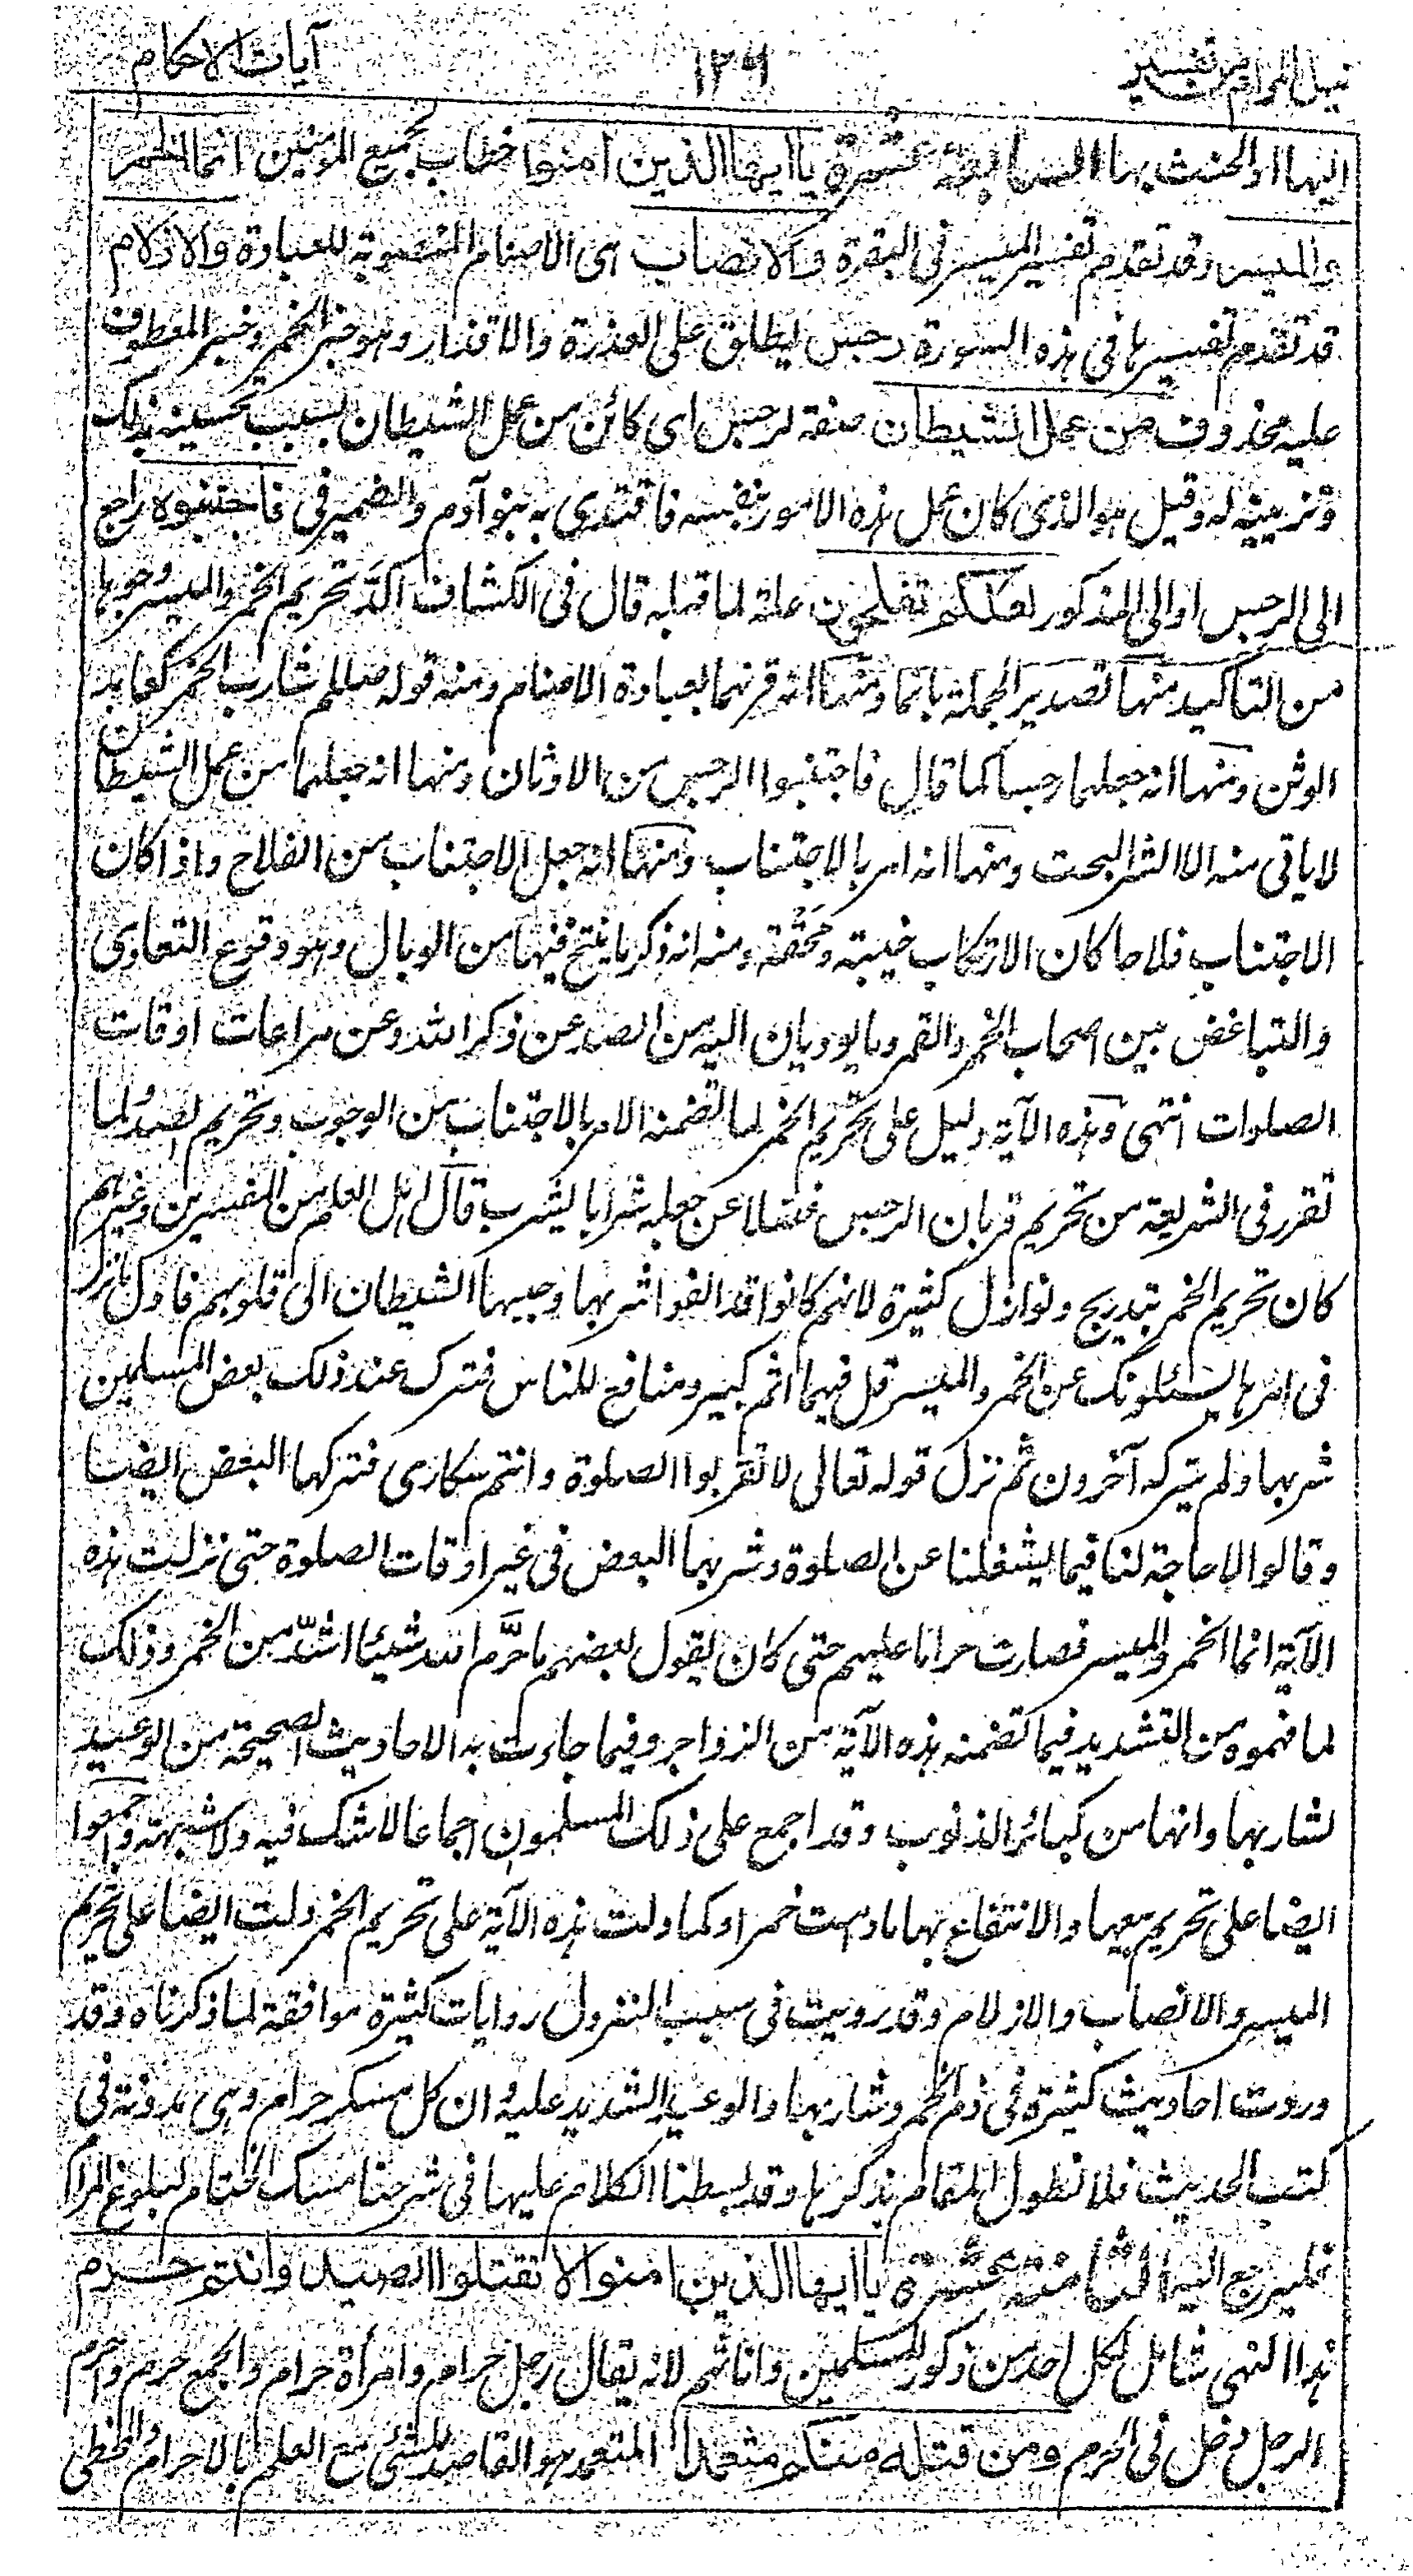 نيل المرام من تفسير ١٢٩ آيات الاحكام
اليها او الحنث بها السابعة عشرة يا ايها الذين امنوا خطاب لجميع المومنين انما الخمر
والميسر وقد تقدم تفسير الميسر فى البقرة والانصاب هى الاصنام المنصوبة للعبادة والازلام
قد تقدم تفسيرها فى هذه السورة رجس يطلق على العذرة والاقذار وهو خبر الخمر وخبر المعطوف
عليه محذوف من عمل الشيطان صفة لرجس اى كائن من عمل الشيطان بسبب تحسينه لذلك
وتزيينه له وقيل هو الذى كان عمل هذه الامور بنفسه فاقتدى به بنو آدم والضمير فى فاجتنبوه راجع
الى الرجس او الى المذكور لعلكم تفلحون علة لما قبله قال فى الكشاف اكدّ تحريم الخمر والميسر وجوها
من التاكيد منها تصدير الجملة بانما ومنها انه قرنهما بعبادة الاصنام ومنه قوله صللم شارب الخمر كعابد
الوثن ومنها انه جعلهما رجسا كما قال فاجتنبوا الرجس من الاوثان ومنها انه جعلهما من عمل الشيطان
لا ياتى منه الا الشر البحت ومنها انه امر بالاجتناب ومنها انه جعل الاجتناب من الفلاح واذا كان
الاجتناب فلاحا كان الارتكاب خيبة ومحقة ومنه انه ذكر ما ينتج فيها من الوبال وهو وقوع التعادى
والتباغض بين اصحاب الخمر والقمر وما يوديان اليه من الصد عن ذكر الله وعن مراعات اوقات
الصلوات انتهى وهذه الآية دليل على تحريم الخمر لما تضمنه الامر بالاجتناب من الوجوب وتحريم الصد ولما
تقرر فى الشريعة من تحريم قربان الرجس فضلا عن جعله شرابا يشرب قال اهل العلم من المفسرين وغيرهم
كان تحريم الخمر بتدريج ونوازل كثيرة لانهم كانوا قد الفوا شربها وحببها الشيطان الى قلوبهم فاول ما نزل
فى امرها يسئلونك عن الخمر والميسر قل فيهما اثم كبير ومنافع للناس فترك عند ذلك بعض المسلمين
شربها ولم يتركه آخرون ثم نزل قوله تعالى لا تقربوا الصلوة وانتم سكارى فتركها البعض ايضا
وقالوا لا حاجة لنا فيما يشغلنا عن الصلوة وشربها البعض فى غير اوقات الصلوة حتى نزلت هذه
الآية انما الخمر والميسر فصارت حراما عليهم حتى كان يقول بعضهم ما حرَّم الله شيئا اشدّ من الخمر وذلك
لما فهموه من التشديد فيما تضمنه هذه الآية من الزواجر وفيما جاءت به الاحاديث الصحيحة من الوعيد
لشاربها وانها من كبائر الذنوب وقد اجمع على ذلك المسلمون اجماعا لا شك فيه ولا شبهة واجمعوا
ايضا على تحريم بيعها والانتفاع بها ما دامت خمرا وكما دلت هذه الآية على تحريم الخمر دلت ايضا على تحريم
الميسر والانصاب والازلام وقد رويت فى سبب النزول روايات كثيرة موافقة لما ذكرناه وقد
وردت احاديث كثيرة فى ذم الخمر وشاربها والوعيد الشديد عليه وان كل مسكر حرام وهى مدونة فى
كتب الحديث فلا نطول المقام بذكرها وقد بسطنا الكلام عليها فى شرحنا مسك الختام لبلوغ المرام
فليرجع اليه الثامنة عشرة يا ايها الذين امنوا لا تقتلوا الصيد وانتم حرم
هذا النهى شامل لكل احد من ذكور المسلمين واناثهم لانه يقال رجل حرام وامرأة حرام والجمع حرم واحرم
الرجل دخل فى الحرم ومن قتله منكم متعمدا المتعمد هو القاصد للشئ مع العلم بالاحرام والمخطى